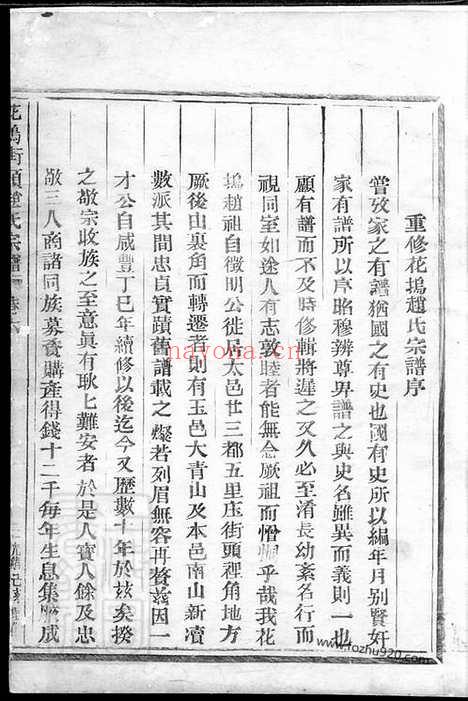 重修花塢趙氏宗譜序
嘗攷家之有譜猶國之有史也國有史所以編年月别賢奸
家有譜所以序昭穆辨尊畀譜之與史名雖異而義則一也
顧有譜而不及時修輯將遲之又久必至淆長幼紊名行而
視同室如途人有志敦睦者能無念厥祖而憎乎哉我花
塢趙祖自徵明公徙居太邑廿三都五里庄街頭裡角地方
厥後由裏角而轉遷者則有玉邑大青山及本邑南山新凟
數派其間忠貞實蹟舊譜載之燦若列眉無容再贅茲因一
才公自咸豐丁巳年續修以後迄今又歷數十年於玆矣揆
之敬宗收族之至意眞有耿匕難安者於是人寳人餘及忠
敬三人商諸同族募資購產得錢十二千每年生息集成
花塢街頭趙氏宗譜
nayona.cn
www.fozhu920.com